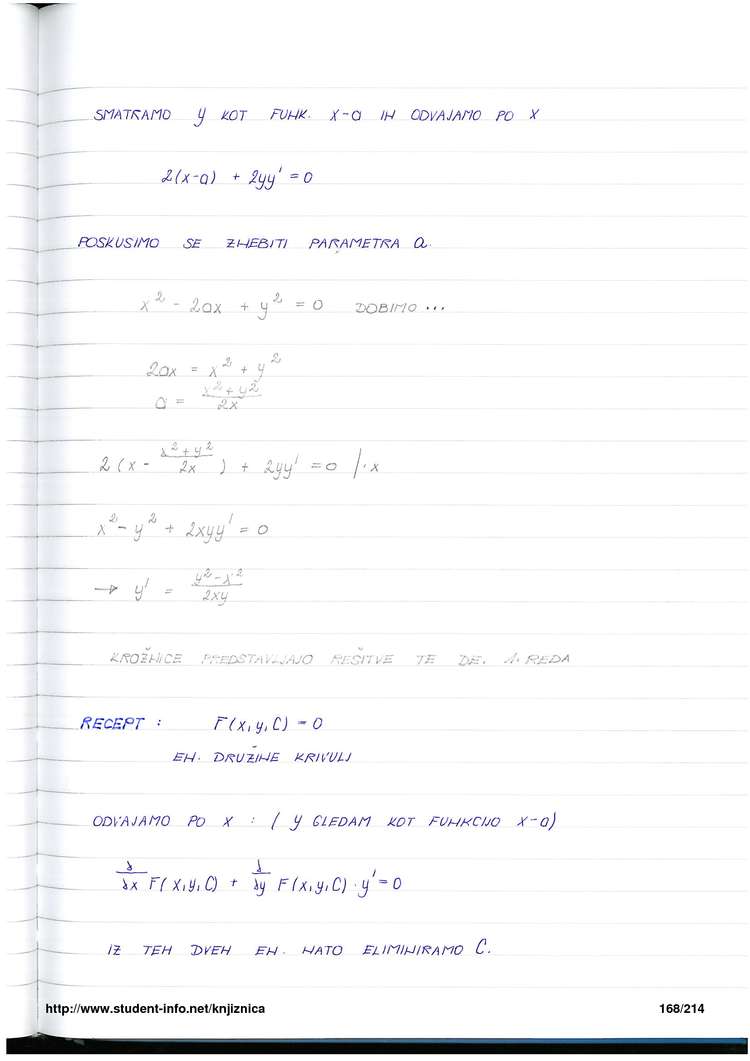 SMATRAMO y KOT FUNK. X-a IN ODVAJAMO PO X
2(x-a) + 2yy' = 0
POSKUSIMO SE ZNEBITI PARAMETRA a.
x² - 2ax + y² = 0 DOBIMO ...
2ax = x² + y²
a = (x²+y²)/2x
2(x - (x²+y²)/2x) + 2yy' = 0 /·x
x² - y² + 2xyy' = 0
→ y' = (y²-x²)/2xy
KROŽNICE PREDSTAVLJAJO REŠITVE TE DE. 1. REDA
RECEPT : F(x,y,C) = 0
EN. DRUŽINE KRIVULJ
ODVAJAMO PO X : ( y GLEDAM KOT FUNKCIJO X-a)
∂/∂x F(x,y,C) + ∂/∂y F(x,y,C) · y' = 0
IZ TEH DVEH EN. NATO ELIMINIRAMO C.
http://www.student-info.net/knjiznica 168/214